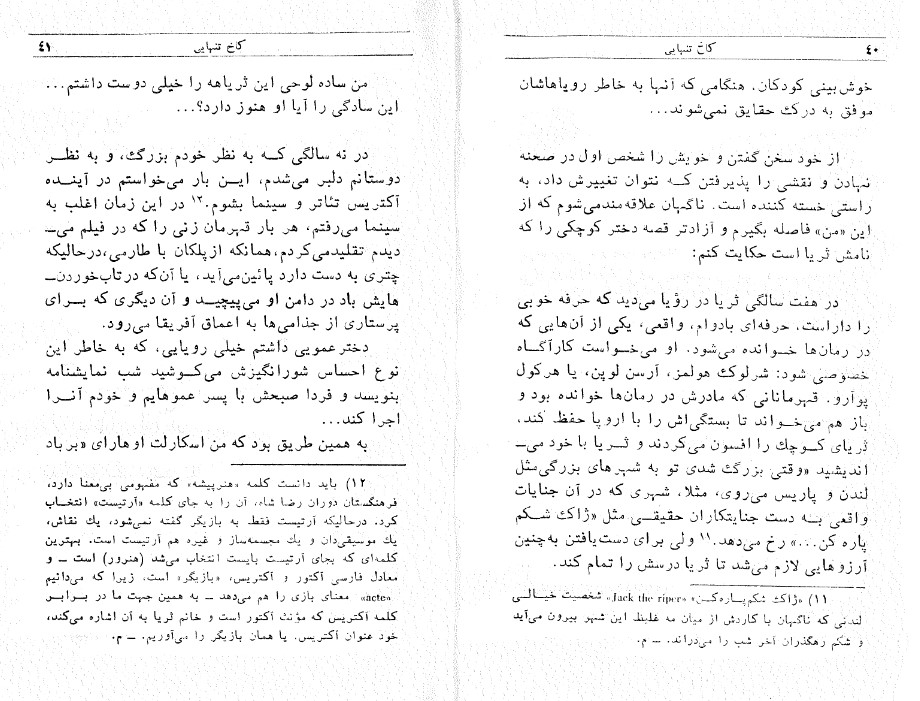 ۴۰
کاخ تنهایی
خوش‌بینی کودکان. هنگامی که آنها به خاطر رویاهاشان
موفق به درک حقایق نمی‌شوند...
از خود سخن گفتن و خویش را شخص اول در صحنه
نهادن و نقشی را پذیرفتن که نتوان تغییرش داد، به
راستی خسته کننده است. ناگهان علاقه‌مند می‌شوم که از
این «من» فاصله بگیرم و آزادتر قصه دختر کوچکی را که
نامش ثریا است حکایت کنم:
در هفت سالگی ثریا در رؤیا می‌دید که حرفه خوبی
را داراست. حرفه‌ای بادوام، واقعی، یکی از آن‌هایی که
در رمان‌ها خوانده می‌شود. او می‌خواست کارآگاه
خصوصی شود: شرلوک هولمز، آرسن لوپن، یا هرکول
پوآرو. قهرمانانی که مادرش در رمان‌ها خوانده بود و
باز هم می‌خواند تا بستگی‌اش را با اروپا حفظ کند،
ثریای کوچک را افسون می‌کردند و ثریا با خود می‌ـ
اندیشید «وقتی بزرگ شدی تو به شهرهای بزرگی مثل
لندن و پاریس می‌روی، مثلا، شهری که در آن جنایات
واقعی به دست جنایتکاران حقیقی مثل «ژاک شکم
پاره کن...» رخ می‌دهد.۱۱ ولی برای دست‌یافتن به‌چنین
آرزوهایی لازم می‌شد تا ثریا درسش را تمام کند.
۱۱) «ژاک شکم‌پاره‌کن» «Jack the riper» شخصیت خیالی
لندنی که ناگهان با کاردش از میان مه غلیظ این شهر بیرون می‌آید
و شکم رهگذران آخر شب را می‌دراند. ـ م.
کاخ تنهایی
۴۱
من ساده لوحی این ثریاهه را خیلی دوست داشتم...
این سادگی را آیا او هنوز دارد؟...
در نه سالگی که به نظر خودم بزرگ، و به نظر
دوستانم دلبر می‌شدم، این بار می‌خواستم در آینده
آکتریس تئاتر و سینما بشوم.۱۲ در این زمان اغلب به
سینما می‌رفتم، هر بار قهرمان زنی را که در فیلم می‌ـ
دیدم تقلیدمی‌کردم، همانکه ازپلکان با طارمی، درحالیکه
چتری به دست دارد پائین‌می‌آید، یا آن‌که درتاب‌خوردن‌ـ
هایش باد در دامن او می‌پیچید و آن دیگری که برای
پرستاری از جذامی‌ها به اعماق آفریقا می‌رود.
دخترعمویی داشتم خیلی رویایی، که به خاطر این
نوع احساس شورانگیزش می‌کوشید شب نمایشنامه
بنویسد و فردا صبحش با پسر عموهایم و خودم آنرا
اجرا کند...
به همین طریق بود که من اسکارلت اوهارای «برباد
۱۲) باید دانست کلمه «هنرپیشه» که مفهومی بی‌معنا دارد،
فرهنگستان دوران رضا شاه، آن را به جای کلمه «آرتیست» انتخاب
کرد. درحالیکه آرتیست فقط به بازیگر گفته نمی‌شود، یك نقاش،
یك موسیقی‌دان و یك مجسمه‌ساز و غیره هم آرتیست است. بهترین
کلمه‌ای که بجای آرتیست بایست انتخاب می‌شد (هنرور) است ـ و
معادل فارسی آکتور و آکتریس، «بازیگر» است. زیرا که می‌دانیم
«acte» معنای بازی را هم می‌دهد ـ به همین جهت ما در برابر
کلمه آکتریس که مؤنث آکتور است و خانم ثریا به آن اشاره می‌کند،
خود عنوان آکتریس. یا همان بازیگر را می‌آوریم. ـ م.